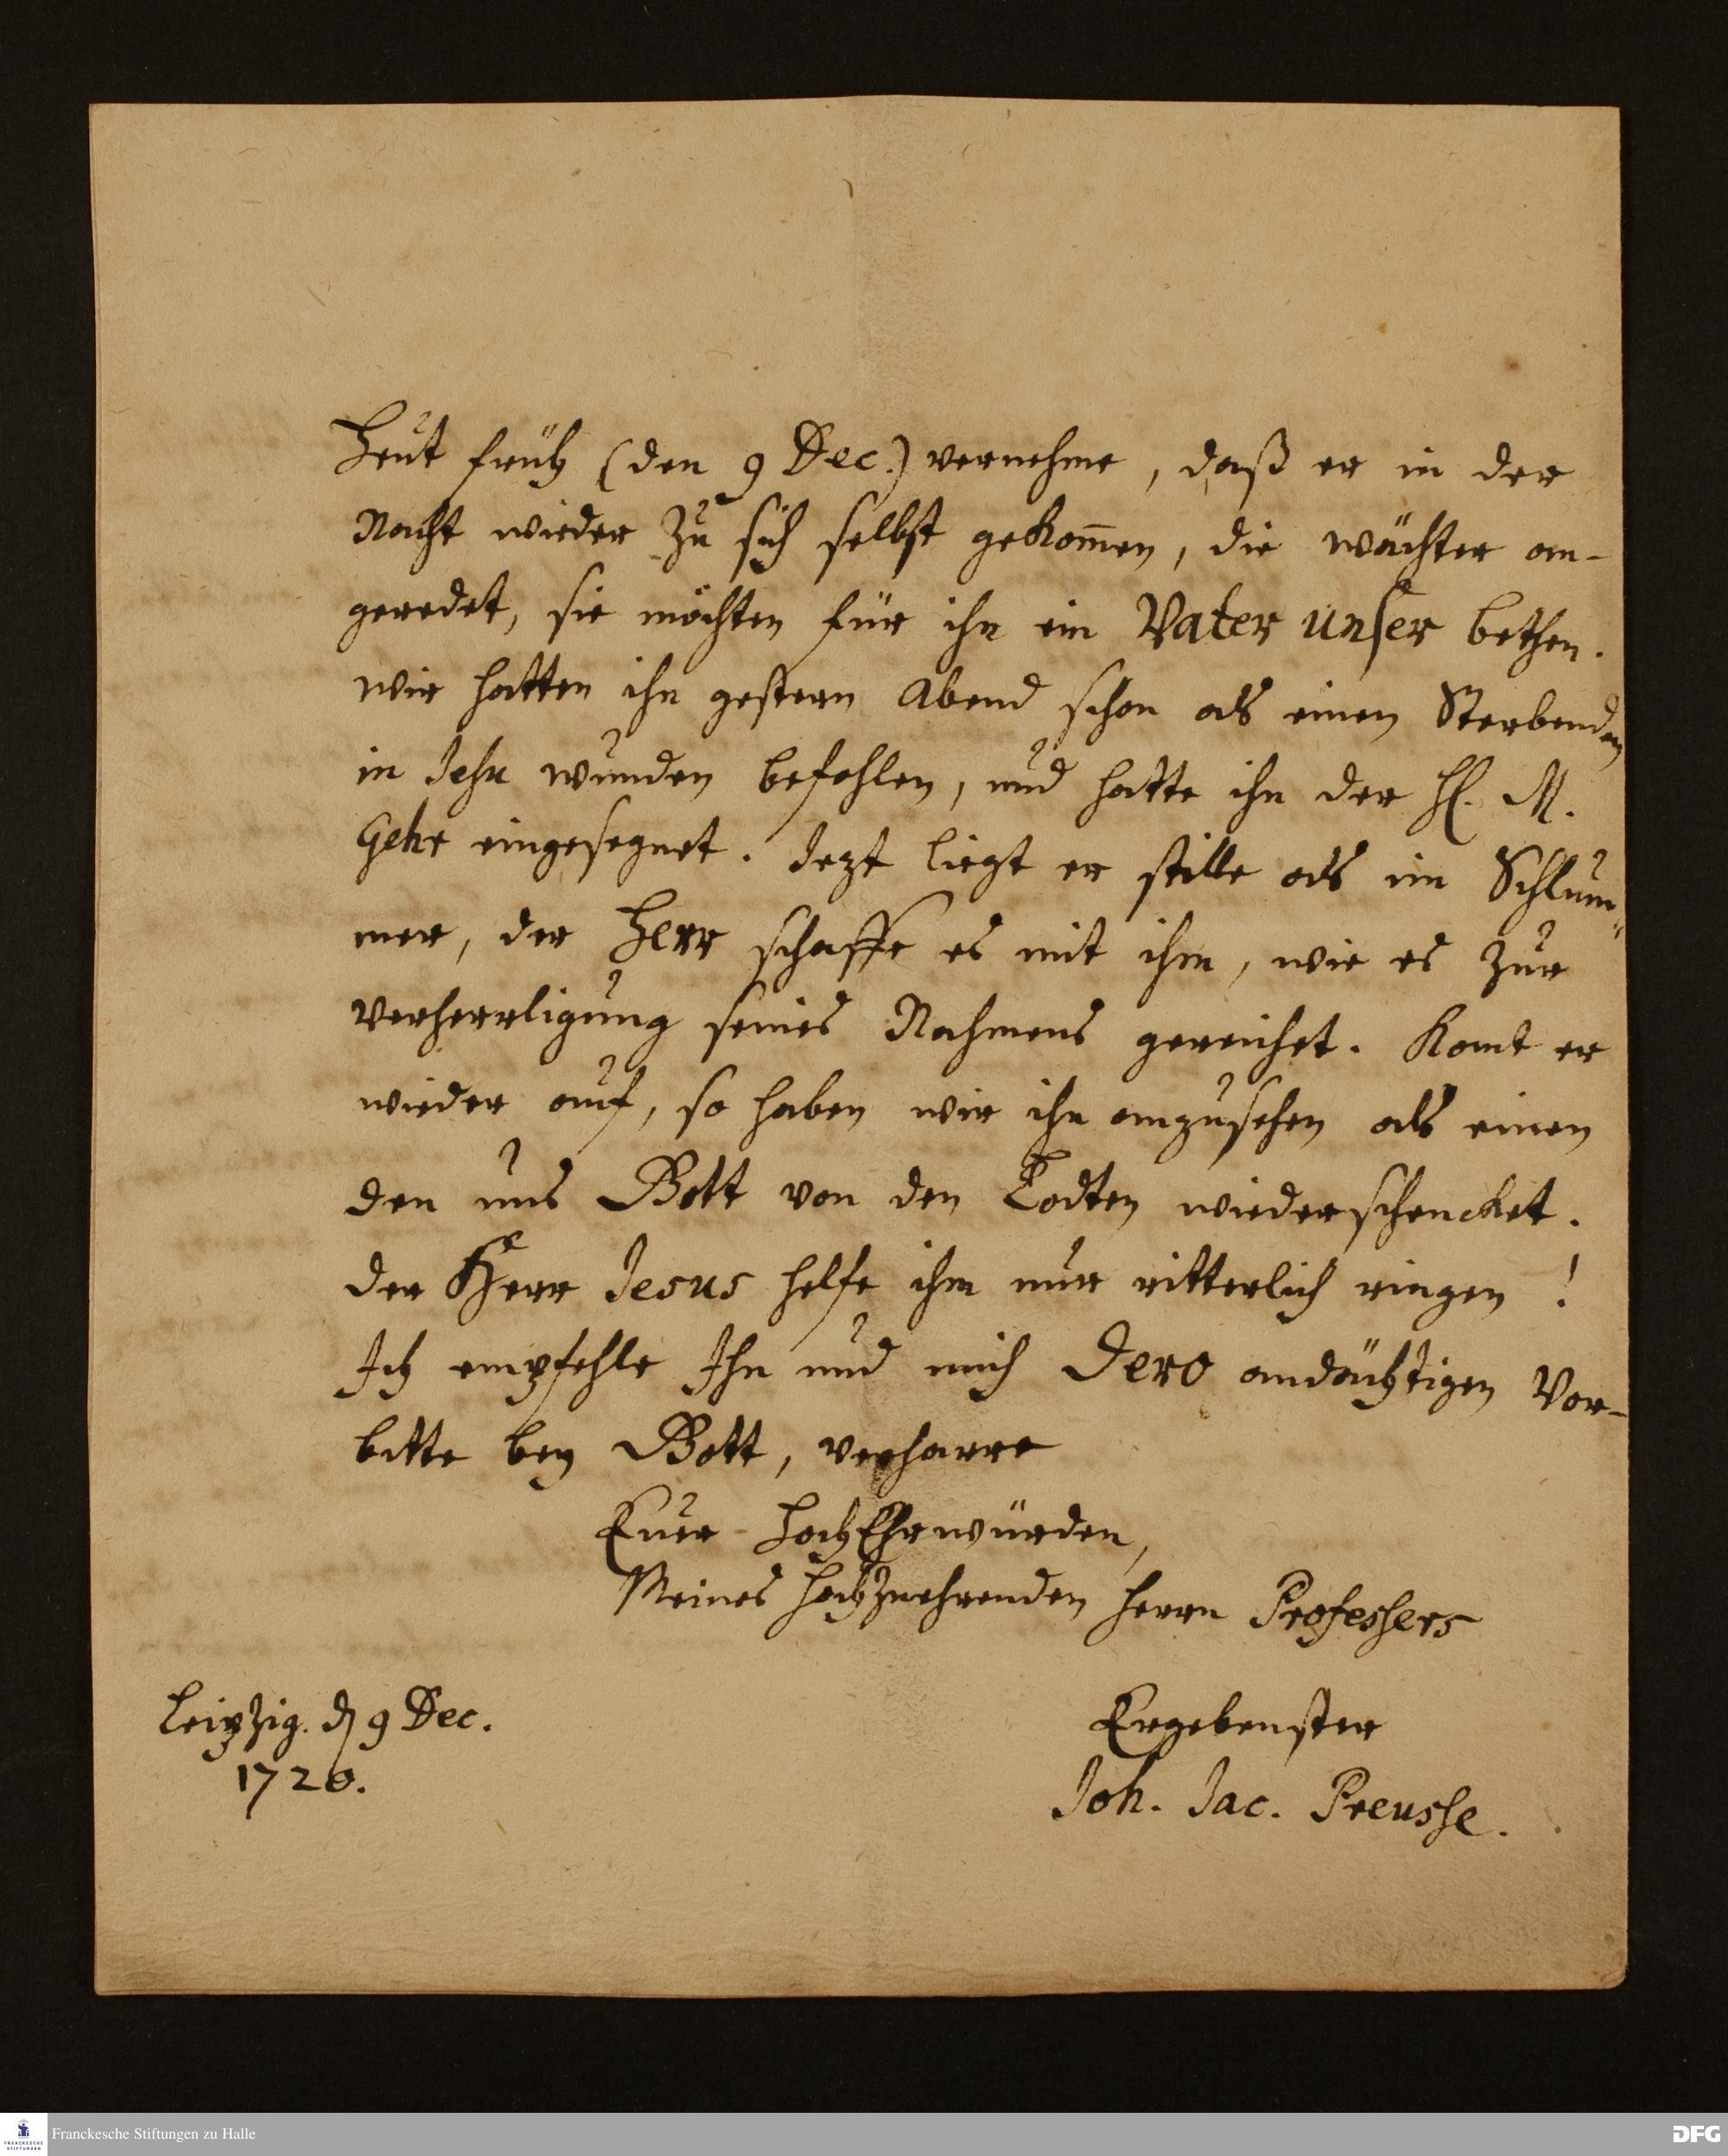 Heut früh (den 9 Dec.) vernehme, daß er in der
Nacht wieder zu sich selbst gekom̄en, die wächter an-
geredet, sie möchten für ihn ein Vater unser bethen.
wir hatten ihn gestern Abend schon als einen Sterbenden
in Jesu wunden befohlen, und hatte ihn der H. M.
Gehr eingesegnet. Jezt liegt er stille als im Schlum-
mer, der Herr schaffe es mit ihm, wie es zur
verherrligung seines Nahmens gereichet. Komt er
wieder auf, so haben wir ihn anzusehen als einen
den uns Gott von den Todten wiederschencket.
der Herr Jesus helfe ihm nur ritterlich ringen!
Ich empfehle Ihn und mich Dero andächtigen Vor-
bitte bey Gott, verharre
Euer HochEhrwürden,
Meines hochzuehrenden Herrn Professers
Leipzig. d 9 Dec.
1720.
Ergebenster
Joh. Jac. Preusse.
Franckesche Stiftungen zu Halle
FRANCKESCHE STIFTUNGEN
DFG